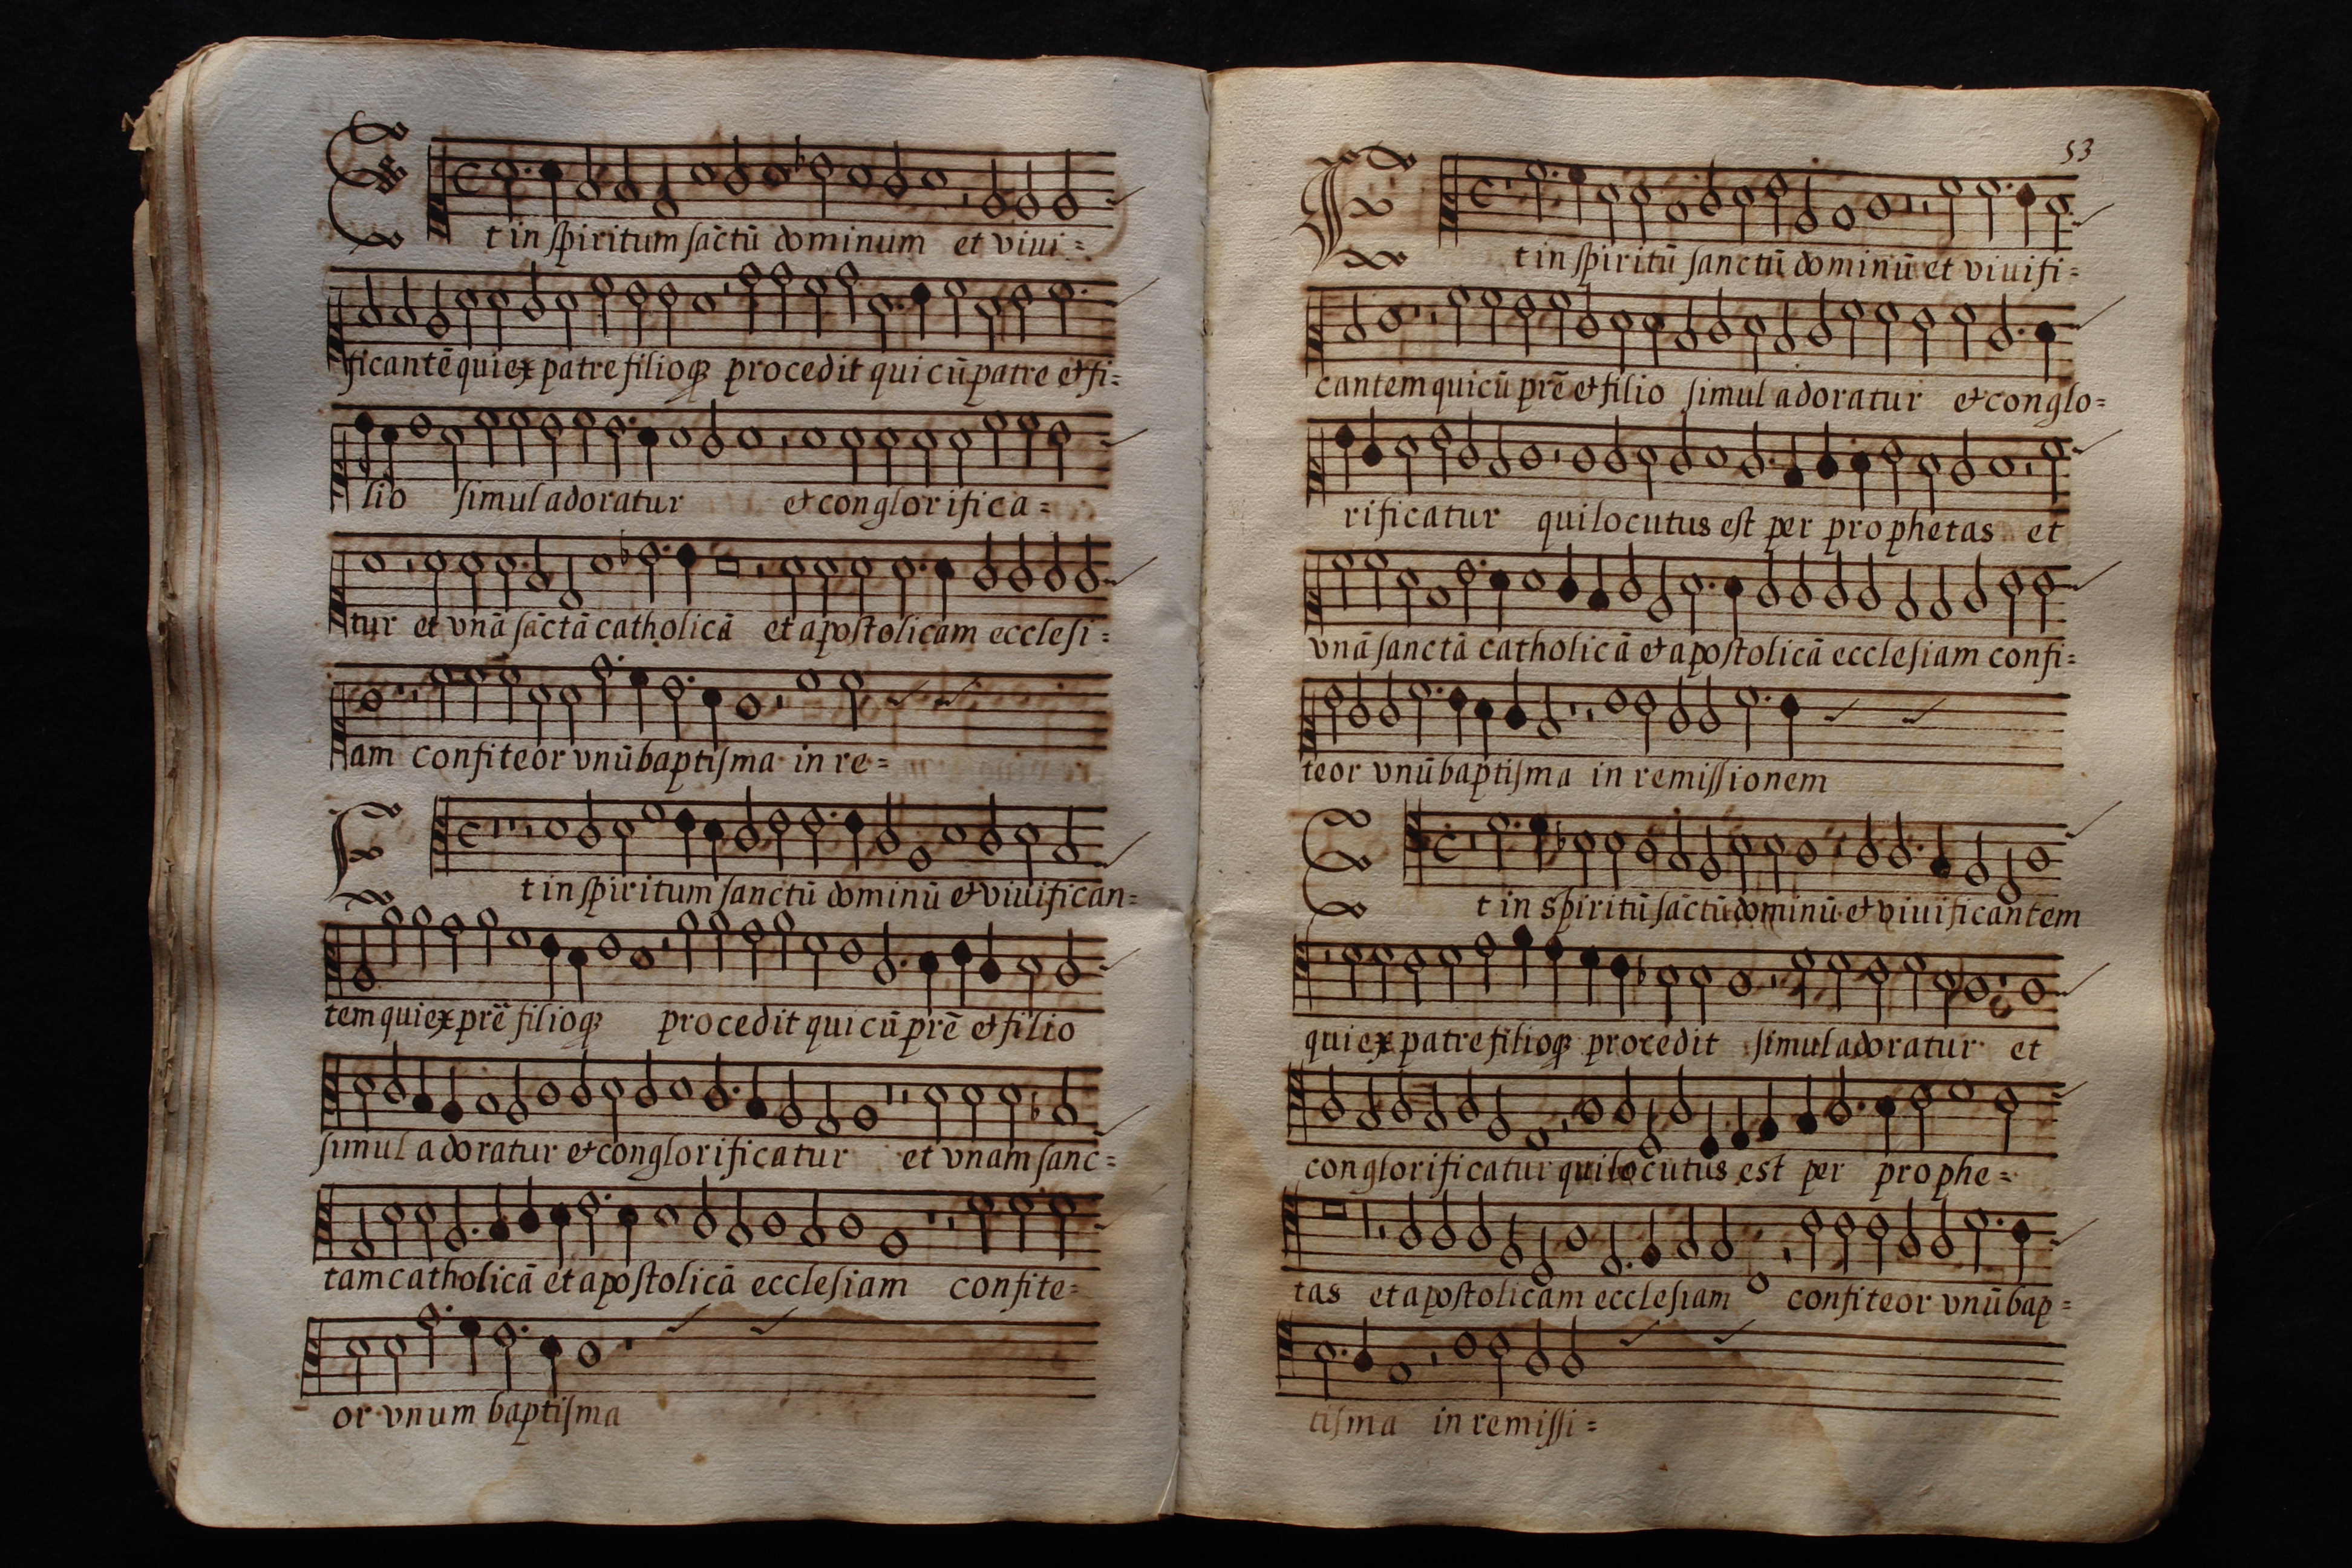 Et in spiritum sāctū dominum et viui=
ficantē qui ex patre filioqꝫ procedit qui cū patre et fi=
lio simul adoratur et conglorifica=
tur et vnā sāctā catholicā et apostolicam ecclesi=
am confiteor vnū baptisma in re=
Et in spiritum sanctū dominū et viuifican=
tem qui ex prē filioqꝫ procedit qui cū prē et filio
simul adoratur et conglorificatur et vnam sanc=
tam catholicā et apostolicā ecclesiam confite=
or vnum baptisma
53
Et in spiritū sanctū dominū et viuifi=
cantem qui cū prē et filio simul adoratur et conglo=
rificatur qui locutus est per prophetas et
vnā sanctā catholicā et apostolicā ecclesiam confi=
teor vnū baptisma in remissionem
Et in spiritū sāctū dominū et viuificantem
qui ex patre filioqꝫ procedit simul adoratur et
conglorificatur qui locutus est per prophe=
tas et apostolicam ecclesiam confiteor vnū bap=
tisma in remissi=